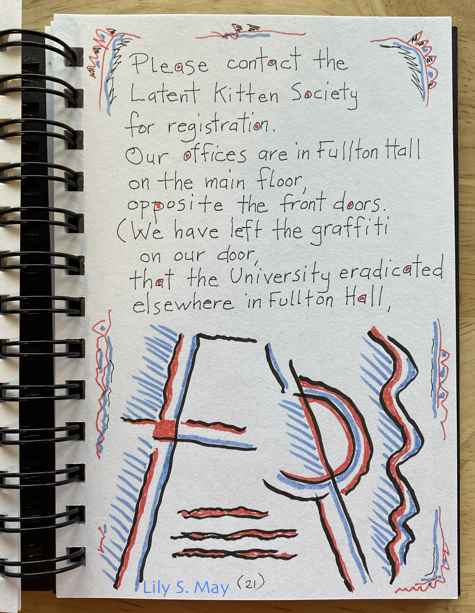 Please contact the
Latent Kitten Society
for registration.
Our offices are in Fullton Hall
on the main floor,
opposite the front doors.
(We have left the graffiti
on our door,
that the University eradicated
elsewhere in Fullton Hall,
Lily S. May (21)